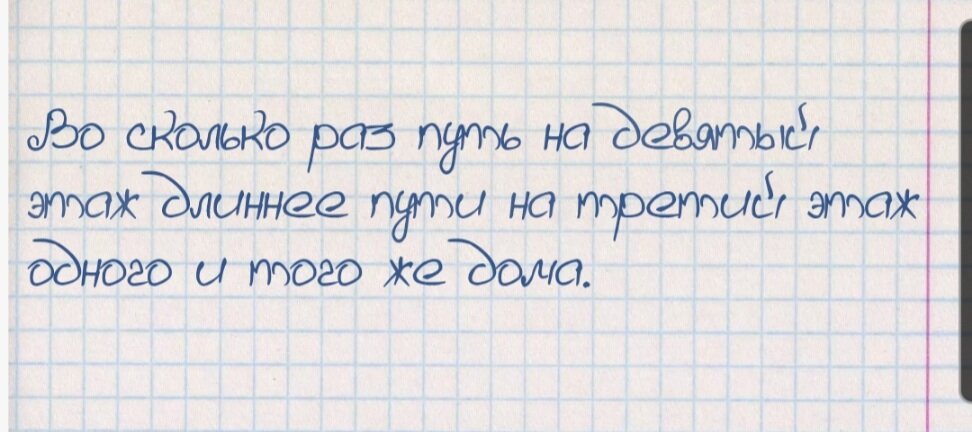 Во сколько раз путь на девятый
этаж длиннее пути на третий этаж
одного и того же дома.